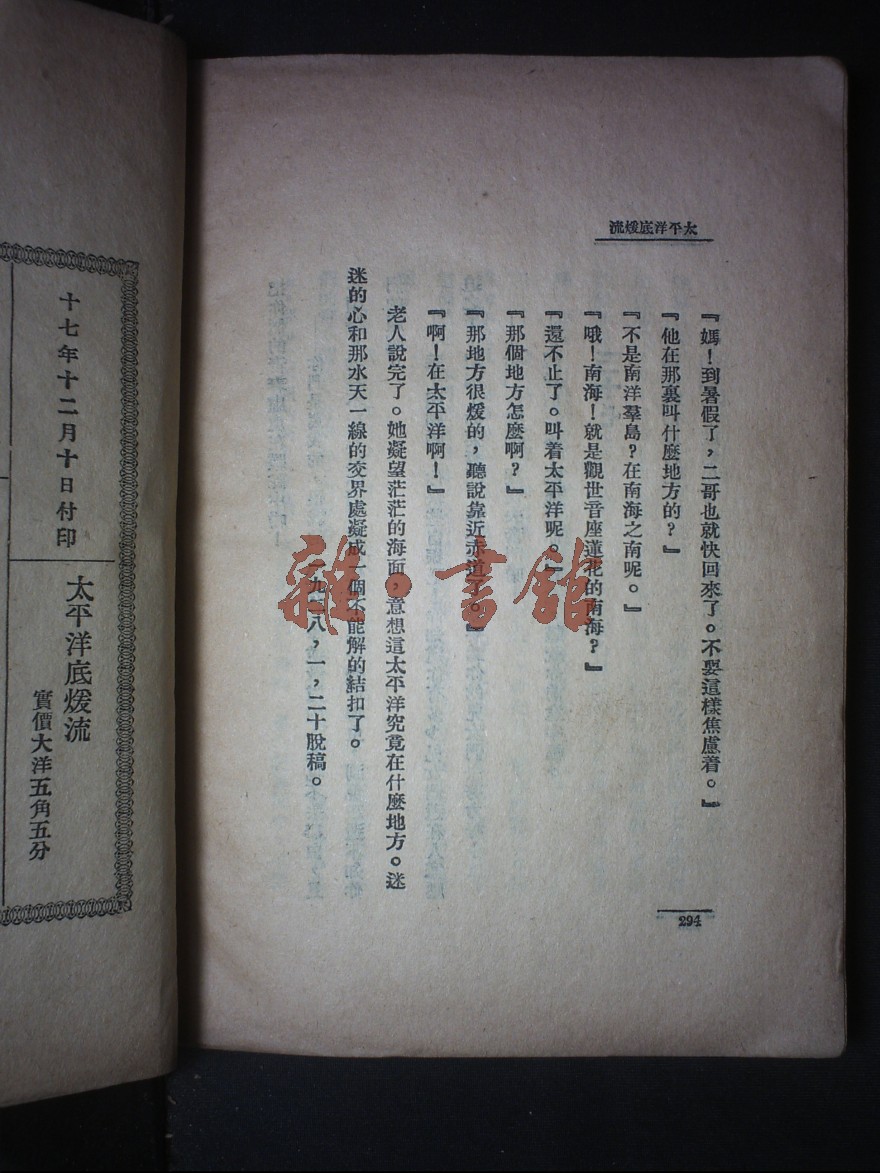 太平洋底煖流
『媽！到暑假了，二哥也就快回來了。不要這樣焦慮着。』
『他在那裏叫什麼地方的？』
『不是南洋羣島？在南海之南呢。』
『哦！南海！就是觀世音座蓮花的南海？』
『還不止了。叫着太平洋呢。』
『那個地方怎麼啊？』
『那地方很煖的，聽說靠近赤道了。』
『啊！在太平洋啊！』
老人說完了。她凝望茫茫的海面，意想這太平洋究竟在什麼地方。迷
迷的心和那水天一線的交界處凝成一個不能解的結扣了。
一九二八，一，二十脫稿。
294
雜。書館
十七年十二月十日付印
太平洋底煖流
實價大洋五角五分